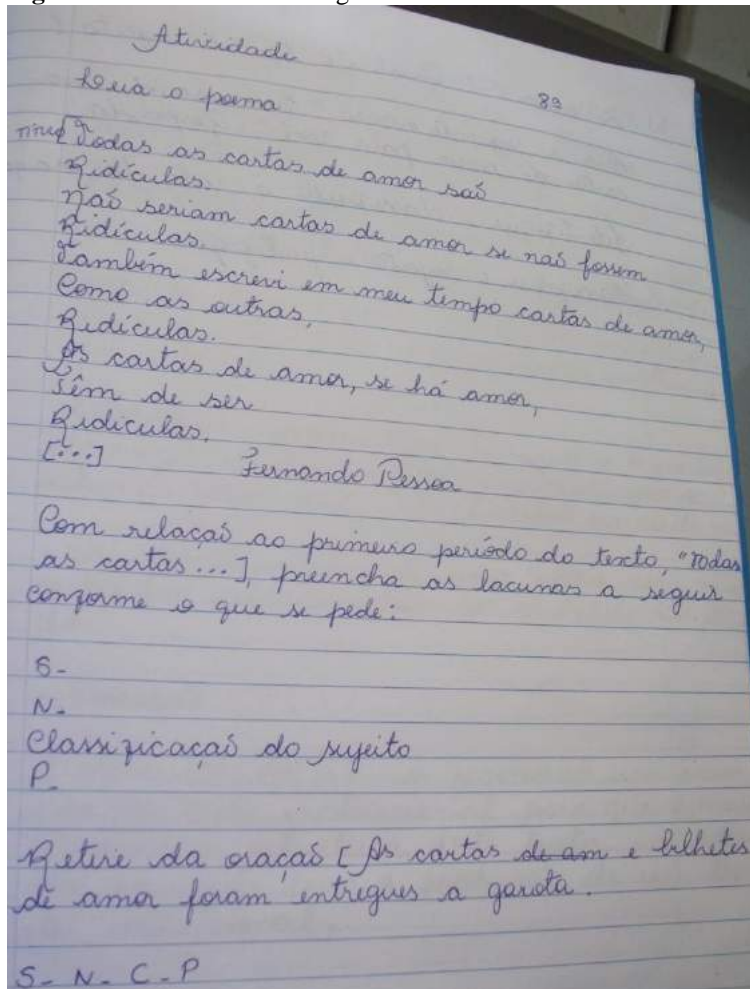 Atividade
Leia o poema
8ª
Todas as cartas de amor saõ
Ridículas.
Naõ seriam cartas de amor se naõ fossem
Ridículas.
Também escrevi em meu tempo cartas de amor,
Como as outras,
Ridículas.
As cartas de amor, se há amor,
Têm de ser
Ridiculas.
[...] Fernando Pessoa
Com relaçaõ ao primeiro período do texto, "Todas
as cartas...], preencha as lacunas a seguir
conforme o que se pede:
S-
N-
Classificaçaõ do sujeito
P-
Retire da oraçaõ [As cartas de am e bilhetes
de amor foram entregues a garota.
S- N- C-P